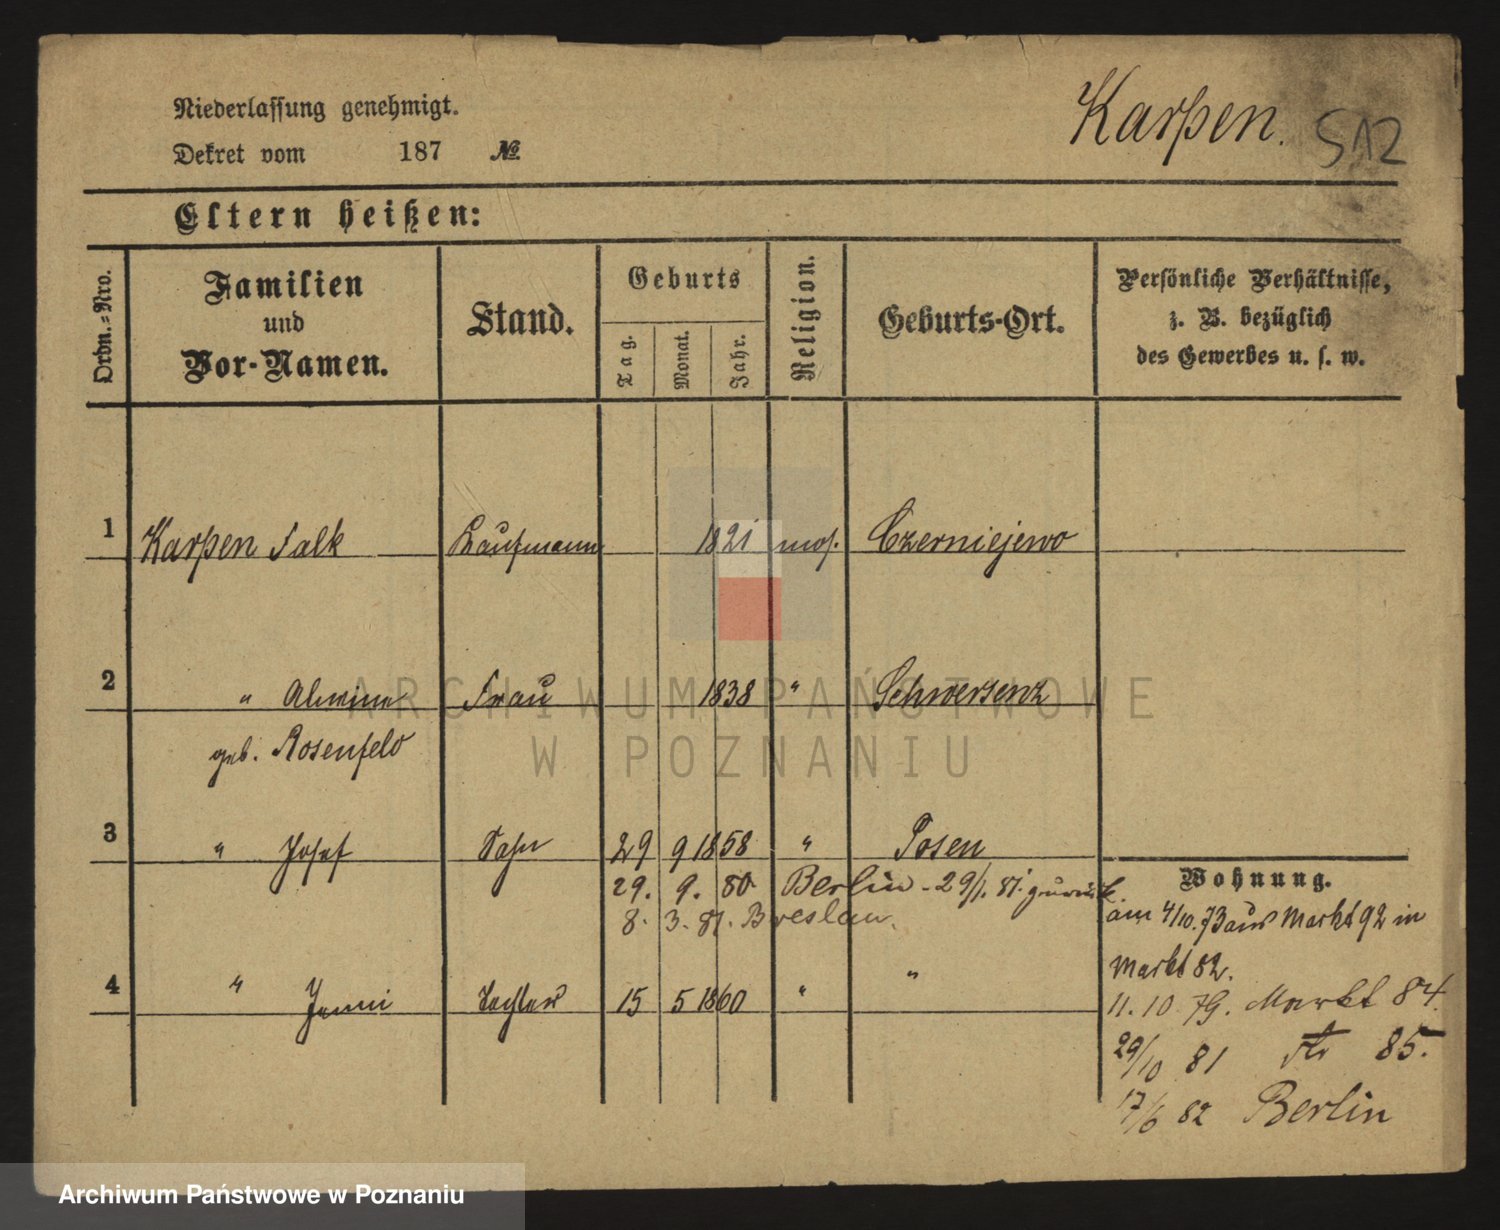 Niederlassung genehmigt.
Karpen. SA2
Dekret vom 187 №
Eltern heißen:
Ordn.-Nro.
Familien
und
Vor-Namen.
Stand.
Geburts
Tag.
Monat.
Jahr.
Religion.
Geburts-Ort.
Persönliche Verhältnisse,
z. B. bezüglich
des Gewerbes u. s. w.
1 Karpen Falk Kaufmann 1821 mos. Czerniejewo
2 " Alwine Frau 1838 " Schwersenz
geb. Rosenfeld
3 " Josef Sohn 29 9 1858 " Posen
29. 9. 80 Berlin - 29/1. 81. zurück.
8. 3. 81. Breslau.
4 " Jenni Tochter 15 5 1860 " "
Wohnung.
am 4/10. 73 aus Markt 92 in
Markt 82.
11. 10. 79. Markt 84.
29/10 81 85.
17/6 82 Berlin
ARCHIWUM PAŃSTWOWE
W POZNANIU
Archiwum Państwowe w Poznaniu